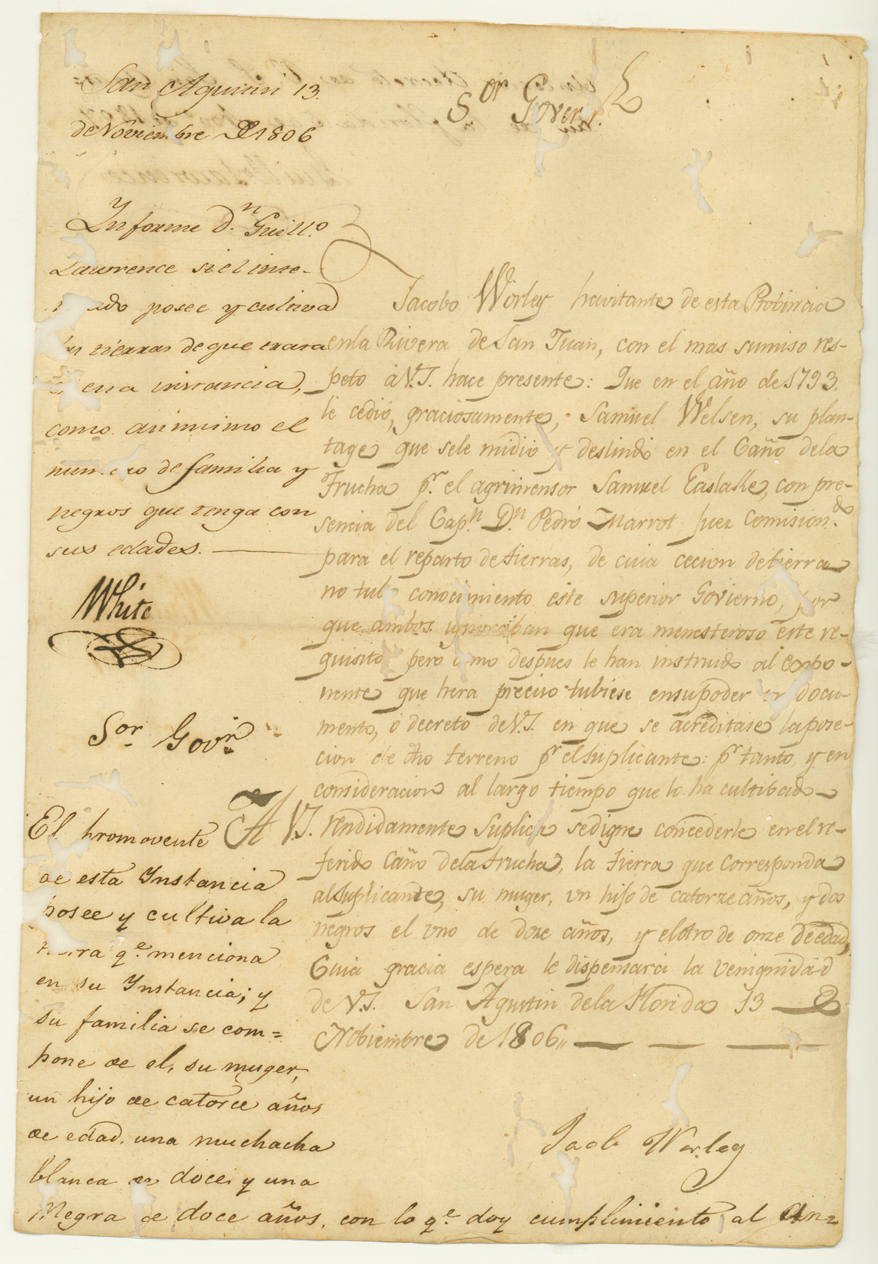 San Agustin 13
de Noviembre D 1806
Informe Dn. Guillo.
Lawrence si el inte-
posee y cultiva
las tierras de que trata
en esta instancia,
como asimismo el
numero de familia y
negros que tenga con
sus edades.
White
Sor. Govr.
El promovente
de esta Instancia
posee y cultiva la
tierra qe. menciona
en su Instancia; y
su familia se com=
pone de el, su muger,
un hijo de catorce años
de edad, una muchacha
blanca de doce, y una
Negra de doce años, con lo qe. doy cumplimiento al an=
Sor. Gover.
Jacobo Worley havitante de esta Probincia
en la Rivera de San Juan, con el mas sumiso res-
peto à V.S. hace presente: Que en el año de 1793.
le cedio, graciosamente, Samuel Welsen, su plan-
tage que sele midio y deslindo en el Caño dela
Trucha pr. el agrimensor Samuel Eastlake, con pre-
sencia del Capn. Dn. Pedro Marrot Juez Comisiondo.
para el reparto de tierras, de cuia cecion de tierra
no tubo conocimiento este superior Govierno, por
que ambos ignoraban que era menesteroso este re-
quisito, pero como despues le han instruido al expo-
nente que hera preciso tubiese en su poder un docu-
mento, ó decreto de V.S. en que se acreditase la pose-
cion de dho terreno pr. el suplicante: pr. tanto, y en
consideracion al largo tiempo que lo ha cultibado
A V.S. rendidamente suplica se digne concederle en el re-
ferido Caño dela trucha, la tierra que corresponda
al suplicante, su muger, un hijo de catorze años, y dos
negros el uno de doze años, y el otro de onze de edad,
Cuia gracia espera le dispensará la venignidad
de V.S. San Agustin dela Florida 13 D
Nobiembre de 1806,,
Jacob Worley